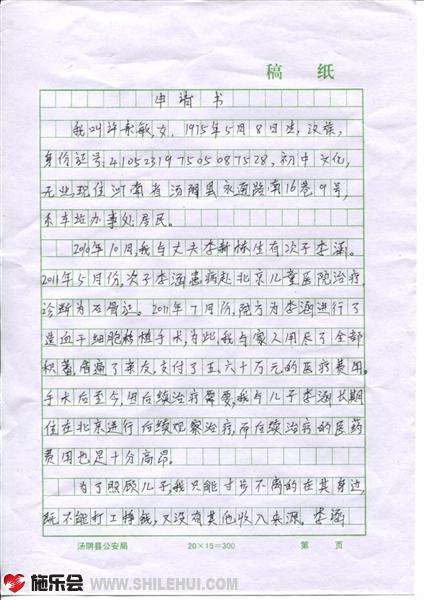 稿 纸
申请书
我叫许素敏,女,1975年5月8日生,汉族,
身份证号:410523197505087528,初中文化,
无业,现住河南省汤阴县永通路南16巷9号,
系车站办事处居民。
2010年10月,我与丈夫李新栋生有次子李涵。
2011年5月份,次子李涵患病赴北京儿童医院治疗,
诊断为石骨症。2011年7月份,院方为李涵进行了
造血干细胞移植手术,为此,我与家人用尽了全部
积蓄,借遍了亲友,支付了五、六十万元的医疗费用。
手术后至今,因后续治疗需要,我与儿子李涵长期
住在北京进行后续观察治疗,而后续治疗的医药
费用也是十分高昂。
为了照顾儿子,我只能寸步不离的在其身边,
既不能打工挣钱,又没有其他收入来源。李涵
汤阴县公安局 20×15=300 第 页
施乐会 WWW.SHILEHUI.COM